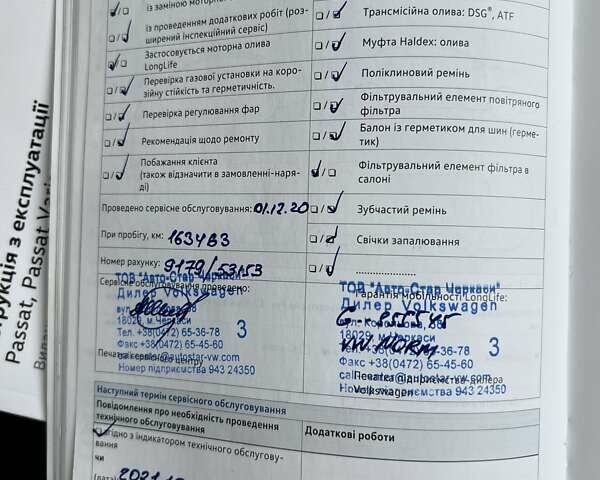 Інструкція з експлуатації
Passat, Passat Variant
із заміною моторної
із проведенням додаткових робіт (роз-
ширений інспекційний сервіс)
Застосовується моторна олива
LongLife
Перевірка газової установки на коро-
зійну стійкість та герметичність.
Перевірка регулювання фар
Рекомендація щодо ремонту
Побажання клієнта
(також відзначити в замовленні-наря-
ді)
Проведено сервісне обслуговування: 01.12.20
При пробігу, км: 163483
Номер рахунку: 9179/53153
Сервісне обслуговування проведено:
ТОВ "Авто-Стар Черкаси"
Дилер Volkswagen
18029, м. Черкаси
Тел. +38(0472) 65-36-78
3
Факс +38(0472) 65-45-60
Печатка сервісного центру
callcenter@autostar-vw.com
Номер підприємства 943 24350
Трансмісійна олива: DSG®, ATF
Муфта Haldex: олива
Поліклиновий ремінь
Фільтрувальний елемент повітряного
фільтра
Балон із герметиком для шин (герме-
тик)
Фільтрувальний елемент фільтра в
салоні
Зубчастий ремінь
Свічки запалювання
....................
Гарантія мобільності LongLife:
ТОВ "Авто-Стар Черкаси"
Дилер Volkswagen
18029, м. Черкаси
VW. NORM
Тел. +38(0472) 65-36-78
3
Факс +38(0472) 65-45-60
callcenter@autostar-vw.com
Печатка підприємства-дилера
Номер підприємства 943 24350
Volkswagen
Наступний термін сервісного обслуговування
Повідомлення про необхідність проведення
технічного обслуговування
Додаткові роботи
Згідно з індикатором технічного обслугову-
вання
чи
(дата)